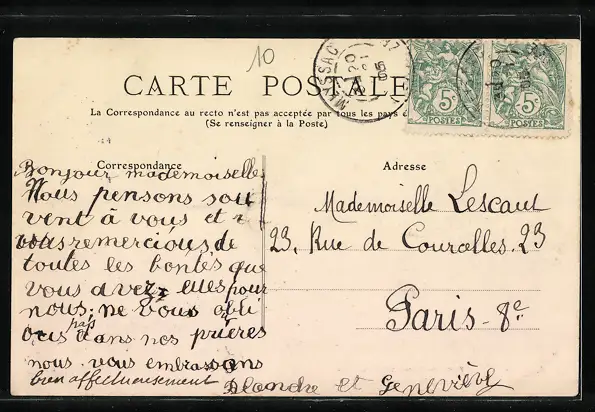 10
CARTE POSTALE
La Correspondance au recto n'est pas acceptée par tous les pays
(Se renseigner à la Poste)
5c
POSTES
5c
POSTES
Correspondance
Bonjour mademoiselle
Nous pensons sou
vent à vous et
vous remercions de
toutes les bontés que
vous avez eues pour
nous; ne vous oubli
ons pas dans nos prières
nous vous embrassons
bien affectueusement
Blanche et Geneviève
Adresse
Mademoiselle Lescaut
23, Rue de Courcelles. 23
Paris - 8e